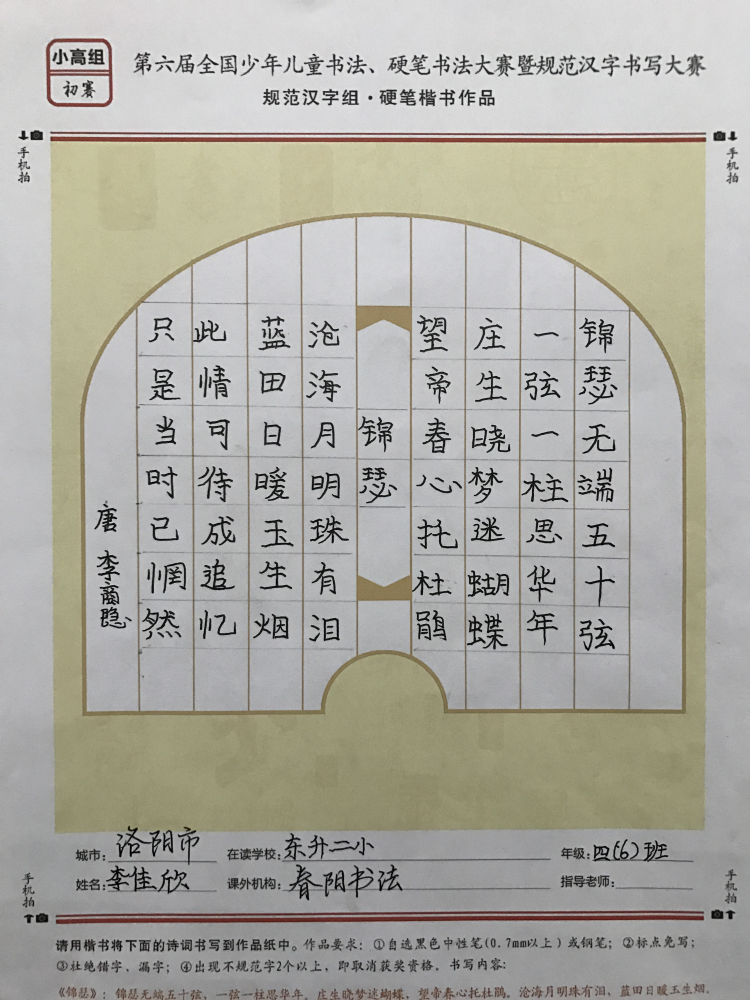 小高组
初赛
第六届全国少年儿童书法、硬笔书法大赛暨规范汉字书写大赛
规范汉字组·硬笔楷书作品
手机拍
手机拍
锦瑟无端五十弦
一弦一柱思华年
庄生晓梦迷蝴蝶
望帝春心托杜鹃
锦瑟
沧海月明珠有泪
蓝田日暖玉生烟
此情可待成追忆
只是当时已惘然
唐 李商隐
城市：洛阳市 在读学校：东升二小 年级：四(6)班
姓名：李佳欣 课外机构：春阳书法 指导老师：
手机拍
手机拍
请用楷书将下面的诗词书写到作品纸中。作品要求：①自选黑色中性笔(0.7mm以上)或钢笔；②标点免写；
③杜绝错字、漏字；④出现不规范字2个以上，即取消获奖资格。书写内容：
《锦瑟》：锦瑟无端五十弦，一弦一柱思华年。庄生晓梦迷蝴蝶，望帝春心托杜鹃。沧海月明珠有泪，蓝田日暖玉生烟。